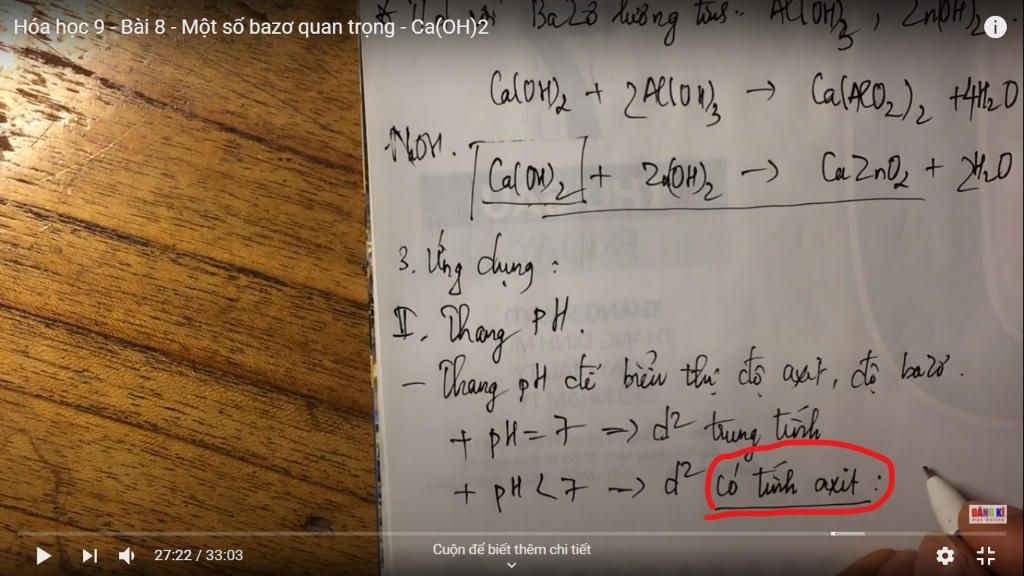 Hóa học 9 - Bài 8 - Một số bazơ quan trọng - Ca(OH)2
Bazơ lưỡng tính: Al(OH)3, Zn(OH)2.
Ca(OH)2 + 2Al(OH)3 → Ca(AlO2)2 + 4H2O
NaOH.
Ca(OH)2 + Zn(OH)2 → CaZnO2 + 2H2O
3. Ứng dụng:
II. Thang pH.
- Thang pH để biểu thị độ axit, độ bazơ.
+ pH = 7 → d2 trung tính
+ pH < 7 → d2 có tính axit:
ĐĂNG KÍ
Học Online
27:22 / 33:03
Cuộn để biết thêm chi tiết